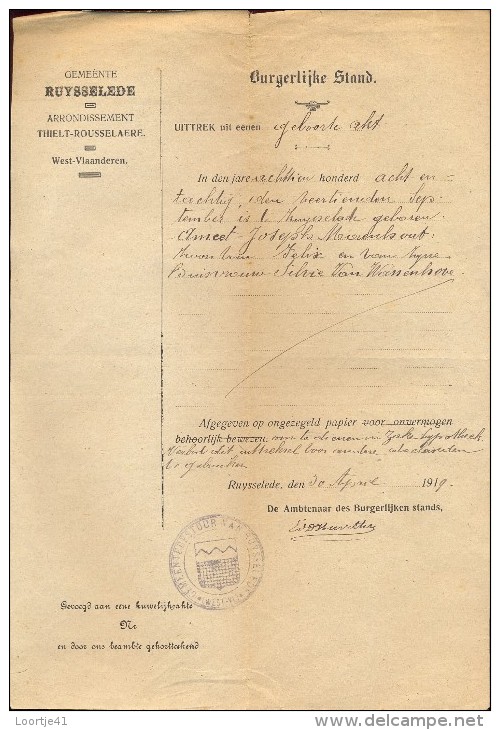 GEMEËNTE
RUYSSELEDE
ARRONDISSEMENT
THIELT-ROUSSELAERE.
West-Vlaanderen.
Burgerlijke Stand.
UITTREK uit eenen geboorte akt
In den jare achttien honderd acht en
tachtig, den veertienden Sep-
tember is te Ruysselede geboren
Joseph
zoon van Felix en van zijne
huisvrouw Silvie Van
Afgegeven op ongezegeld papier voor onvermogen
behoorlijk bewezen om te dienen in zake hypotheek
Verbod dit uittreksel voor andere
te gebruiken
Ruysselede, den 30 April 1919.
De Ambtenaar des Burgerlijken stands,
GEMEENTEBESTUUR VAN RUYSSELEDE
Gevoegd aan eene huwelijksakte
Nr
en door ons beambte gekortteekend
Loortje41
delcampe.net